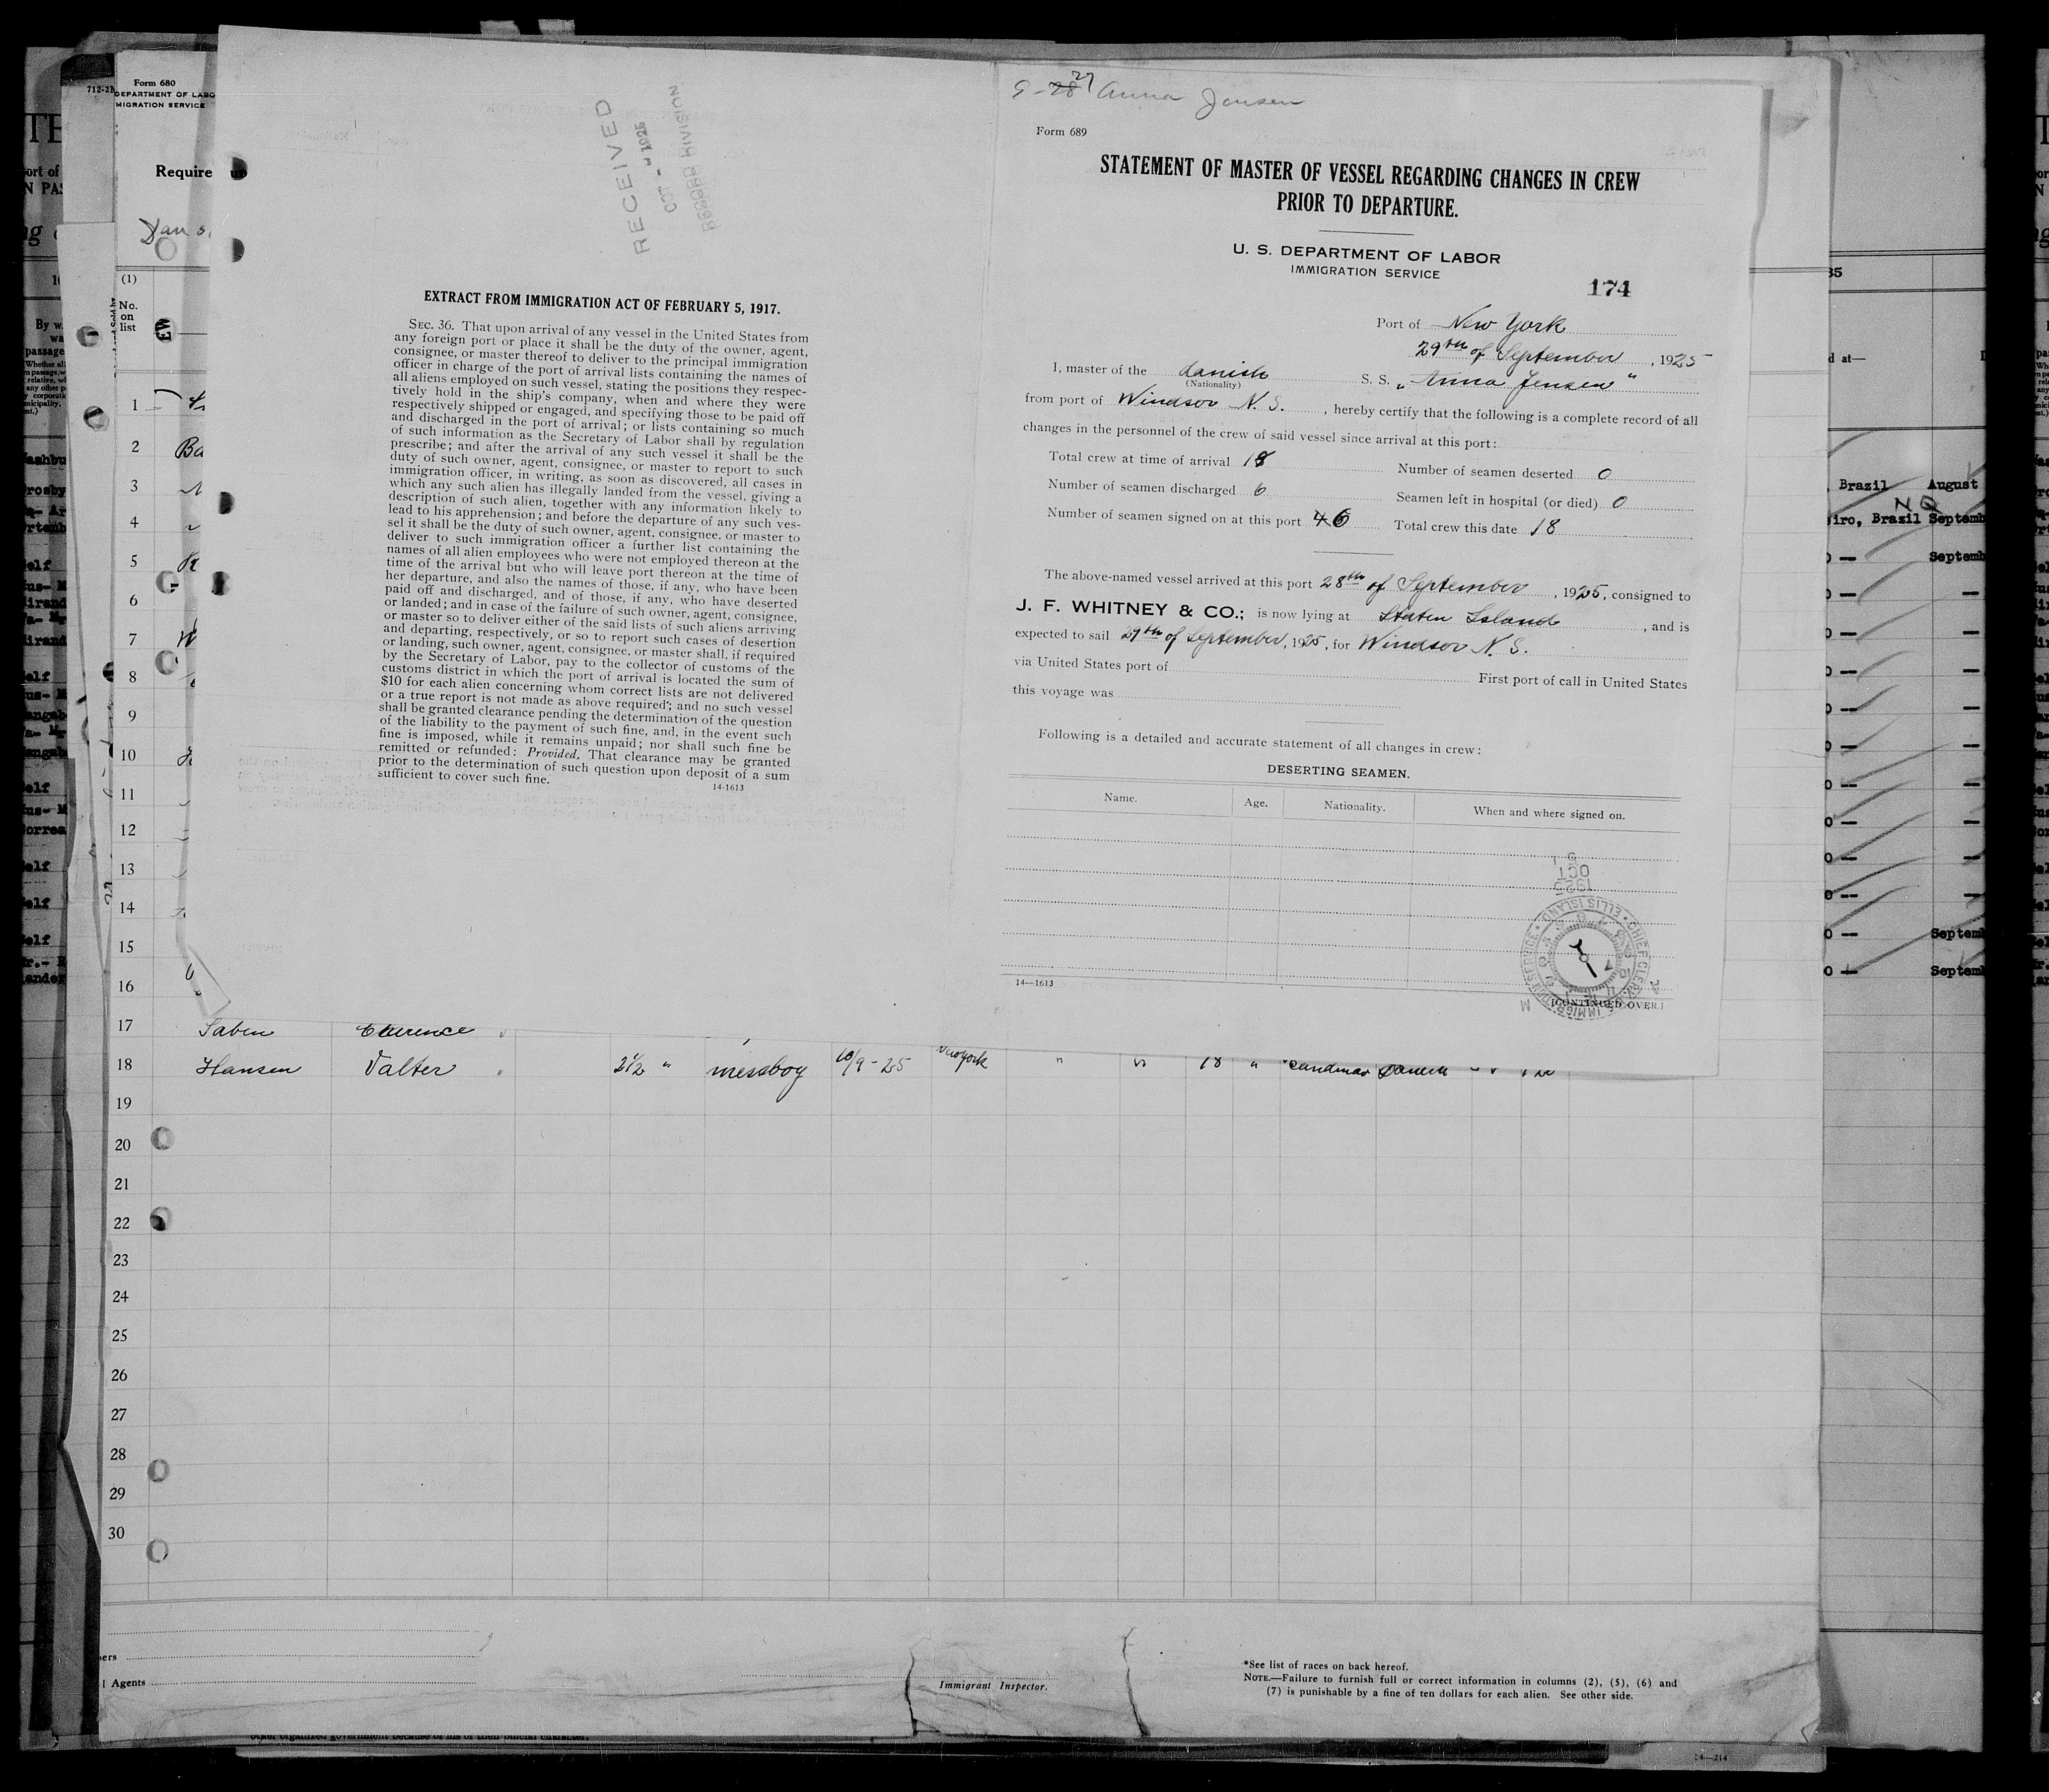 Form 680
DEPARTMENT OF LABO
MIGRATION SERVICE
Require
(1)
No.
on
list
RECEIVED
OCT - 1925
RECORD DIVISION
EXTRACT FROM IMMIGRATION ACT OF FEBRUARY 5, 1917.
SEC. 36. That upon arrival of any vessel in the United States from
any foreign port or place it shall be the duty of the owner, agent,
consignee, or master thereof to deliver to the principal immigration
officer in charge of the port of arrival lists containing the names of
all aliens employed on such vessel, stating the positions they respec-
tively hold in the ship's company, when and where they were
respectively shipped or engaged, and specifying those to be paid off
and discharged in the port of arrival; or lists containing so much
of such information as the Secretary of Labor shall by regulation
prescribe; and after the arrival of any such vessel it shall be the
duty of such owner, agent, consignee, or master to report to such
immigration officer, in writing, as soon as discovered, all cases in
which any such alien has illegally landed from the vessel, giving a
description of such alien, together with any information likely to
lead to his apprehension; and before the departure of any such ves-
sel it shall be the duty of such owner, agent, consignee, or master to
deliver to such immigration officer a further list containing the
names of all alien employees who were not employed thereon at the
time of the arrival but who will leave port thereon at the time of
her departure, and also the names of those, if any, who have been
paid off and discharged, and of those, if any, who have deserted
or landed; and in case of the failure of such owner, agent, consignee,
or master so to deliver either of the said lists of such aliens arriving
and departing, respectively, or so to report such cases of desertion
or landing, such owner, agent, consignee, or master shall, if required
by the Secretary of Labor, pay to the collector of customs of the
customs district in which the port of arrival is located the sum of
$10 for each alien concerning whom correct lists are not delivered
or a true report is not made as above required; and no such vessel
shall be granted clearance pending the determination of the question
of the liability to the payment of such fine, and, in the event such
fine is imposed, while it remains unpaid; nor shall such fine be
remitted or refunded: Provided, That clearance may be granted
prior to the determination of such question upon deposit of a sum
sufficient to cover such fine.
14-1613
9-28 27 Anna Jensen
Form 689
STATEMENT OF MASTER OF VESSEL REGARDING CHANGES IN CREW
PRIOR TO DEPARTURE.
U. S. DEPARTMENT OF LABOR
IMMIGRATION SERVICE
174
Port of New York
29th of September, 1925
I, master of the danish S. S. „Anna Jensen"
(Nationality)
from port of Windsor N. S., hereby certify that the following is a complete record of all
changes in the personnel of the crew of said vessel since arrival at this port:
Total crew at time of arrival 18 Number of seamen deserted 0
Number of seamen discharged 6 Seamen left in hospital (or died) 0
Number of seamen signed on at this port 6 Total crew this date 18
The above-named vessel arrived at this port 28th of September, 1925, consigned to
J. F. WHITNEY & CO.; is now lying at Staten Island, and is
expected to sail 29th of September, 1925, for Windsor N. S.
via United States port of First port of call in United States
this voyage was
Following is a detailed and accurate statement of all changes in crew:
DESERTING SEAMEN.
Name. Age. Nationality. When and where signed on.
1925
OCT
CHIEF CLERK
IMMIGRATION SERVICE
ELLIS ISLAND
14—1613
(CONTINUED OVER.)
1
2 Ba
3
4
5 R
6
7 W
8
9
10
11
12
13
14
15
16
17 Saben Clarence
18 Hansen Valter 2½ " messboy 10/9-25 New York " " 18 "
19
20
21
22
23
24
25
26
27
28
29
30
Agents
Immigrant Inspector.
*See list of races on back hereof.
NOTE.—Failure to furnish full or correct information in columns (2), (5), (6) and
(7) is punishable by a fine of ten dollars for each alien. See other side.
other organized government because of his or their official character.
14—214
, Brazil August
iro, Brazil Septemb
Septemb
Septem
Septem